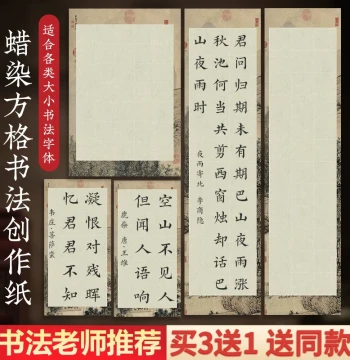 蜡染方格书法创作纸
适合各类大小书法字体
君问归期未有期巴山夜雨涨
秋池何当共剪西窗烛却话巴
山夜雨时
夜雨寄北 李商隐
凝恨对残晖
忆君君不知
韦庄·菩萨蛮
空山不见人
但闻人语响
鹿柴 唐·王维
书法老师推荐
买3送1 送同款